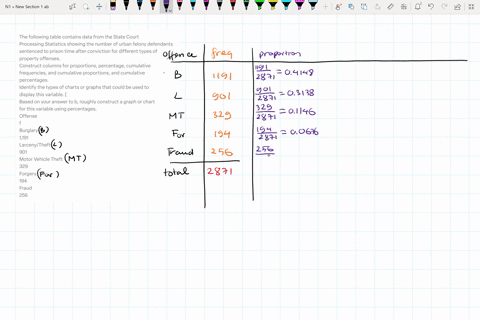 N1 - New Section 1 ab
The following table contains data from the State Court
Processing Statistics showing the number of urban felony defendants
sentenced to prison time after conviction for different types of
property offenses
Construct columns for proportions, percentage, cumulative
frequencies, and cumulative proportions, and cumulative
percentages.
Identify the types of charts or graphs that could be used to
display this variable. [
Based on your answer to b, roughly construct a graph or chart
for this variable using percentages.
Offense
f
Burglary (B)
1,191
Larceny/Theft (L)
901
Motor Vehicle Theft (MT)
329
Forgery (For)
194
Fraud
256
offence freq proportion
B 1191 1191/2871 = 0.4148
L 901 901/2871 = 0.3138
MT 329 329/2871 = 0.1146
For 194 194/2871 = 0.0676
Fraud 256 256
total 2871